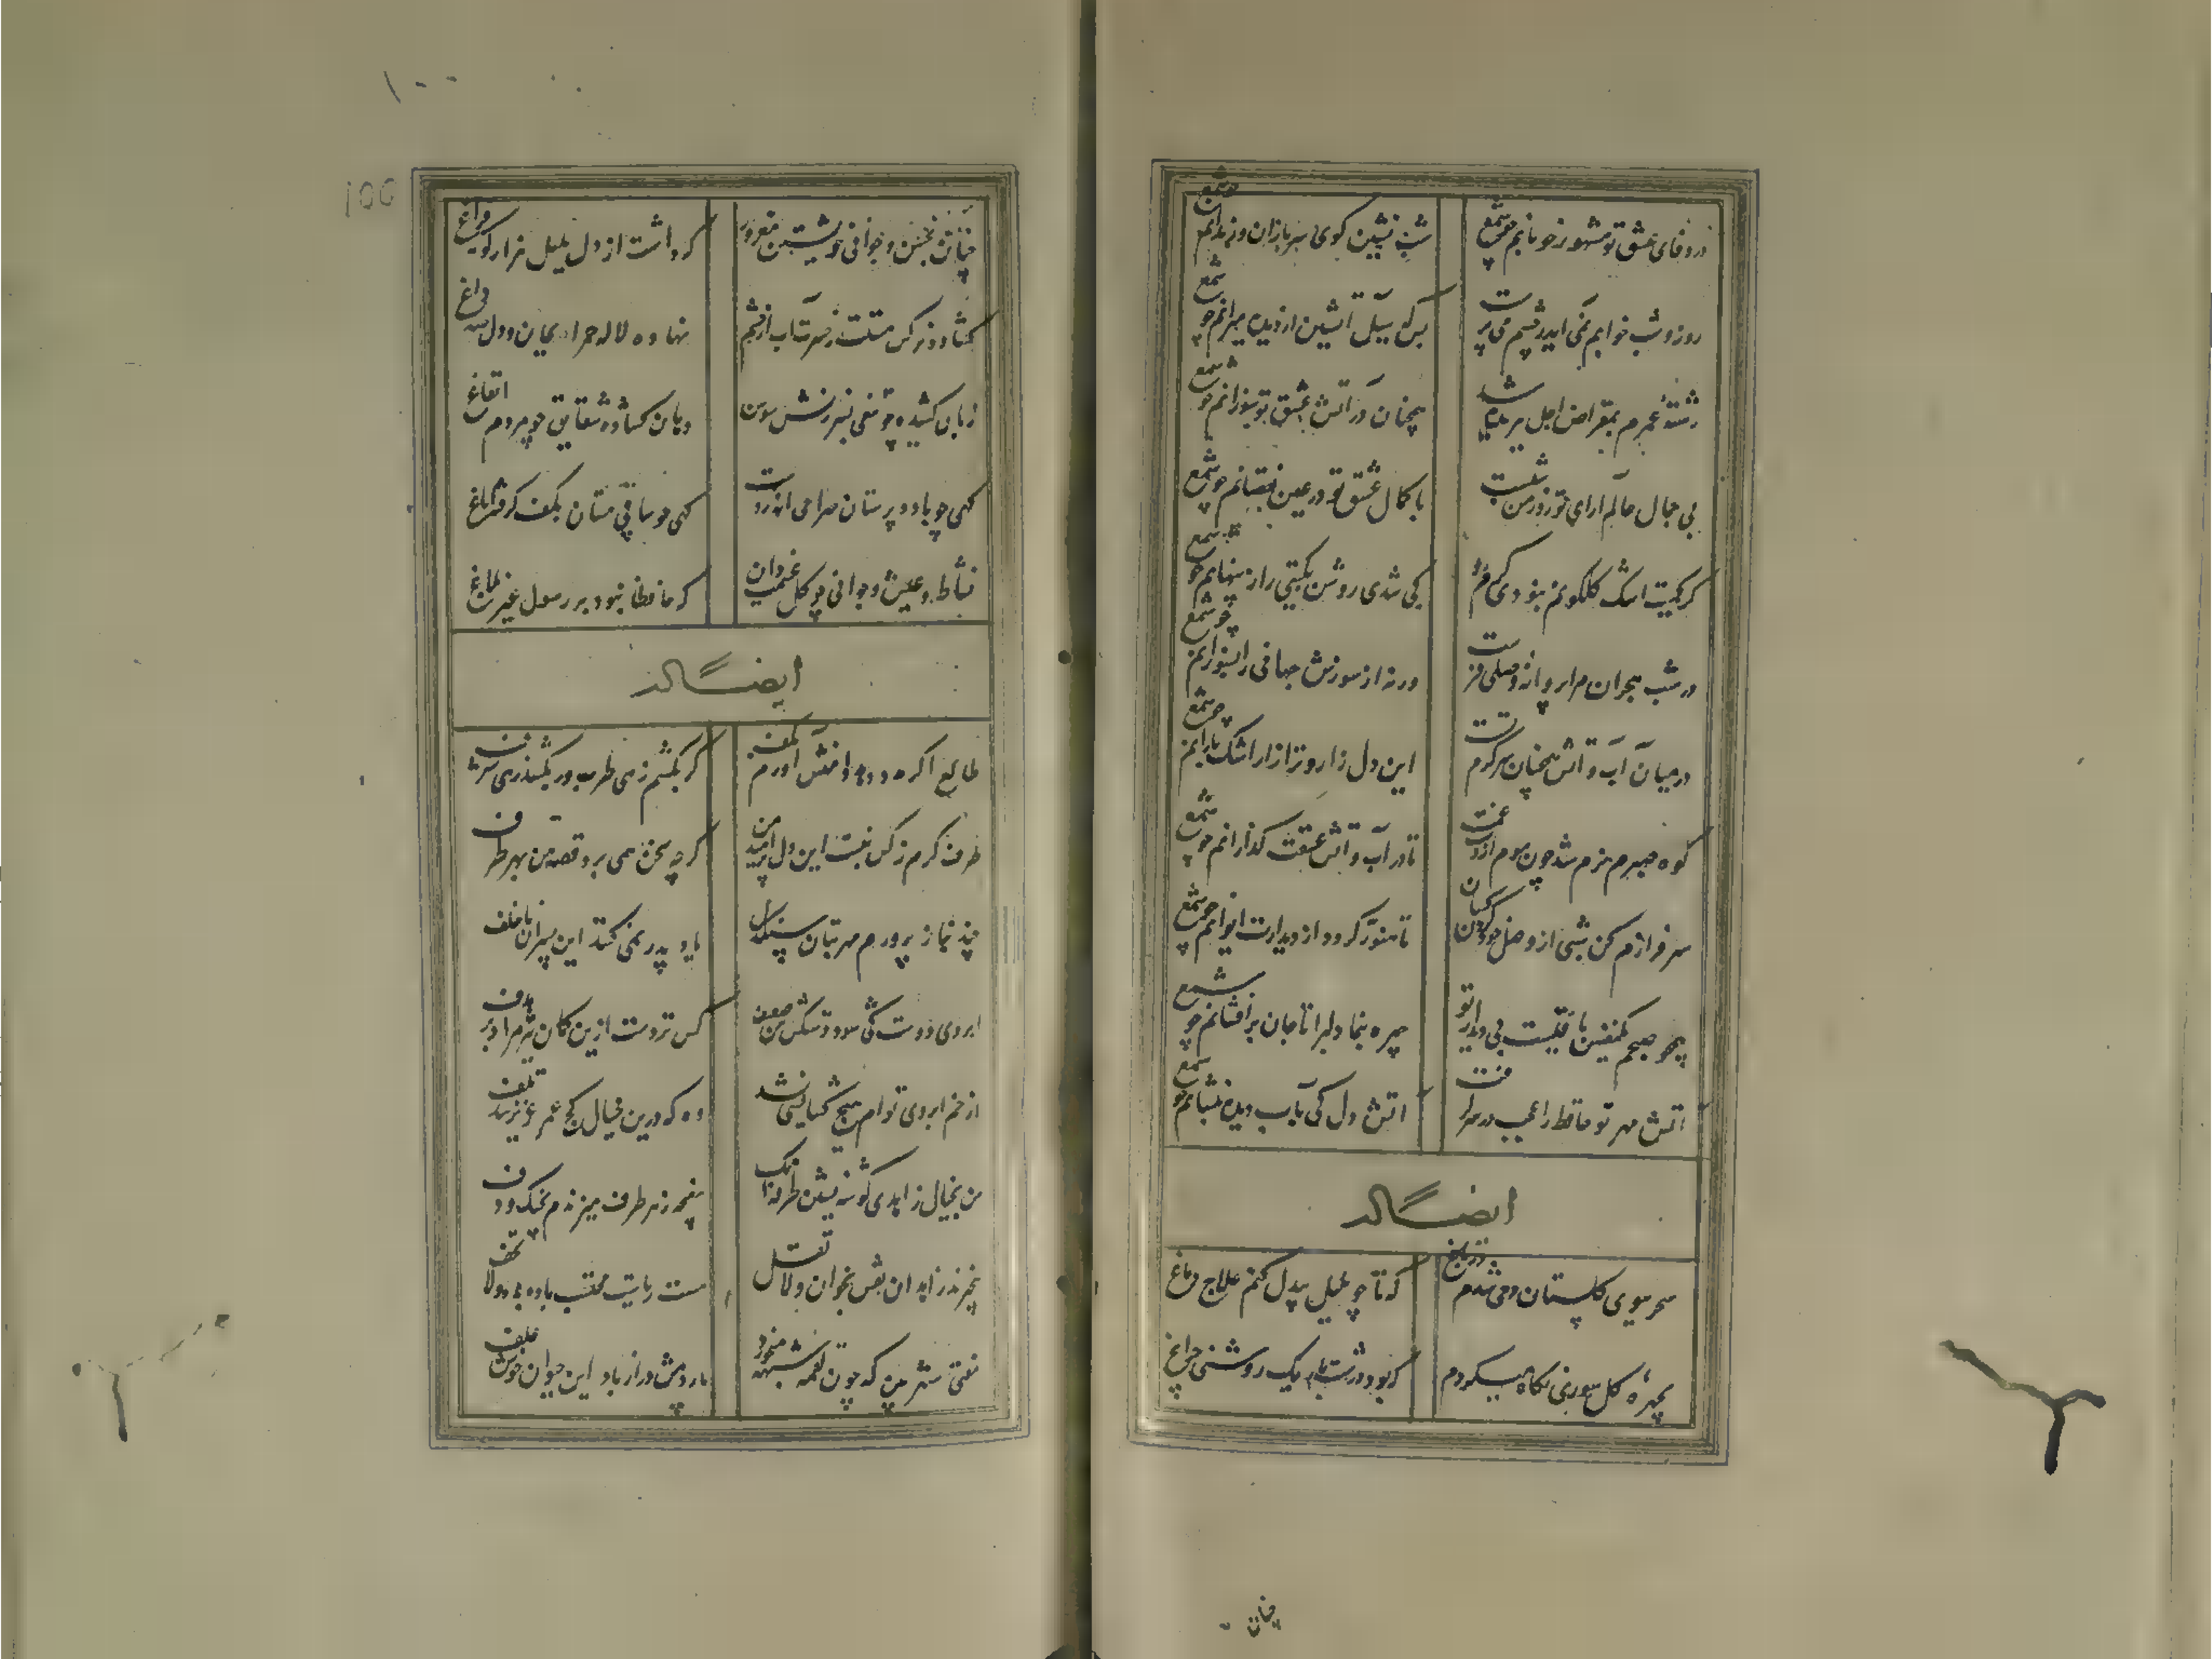 در وفای عشق تو مشهور خوبانم چو شمع
شب نشین کوی سربازان و رندانم چو شمع
روز و شب خوابم نمی اید بچشم می پرست
بس که سیل آتشین از دیده میرانم چو شمع
رشتهٔ عمرم بمقراض اجل ببریده شد
همچنان در آتش عشق تو سوزانم چو شمع
بی جمال عالم آرای تو روزمن شبست
با کمال عشق تو در عین نقصانم چو شمع
کر کمیت اشک کلکونم نبودی کرم رو
کی شدی روشن بکیتی راز پنهانم چو شمع
در شب هجران مرا پروانه وصلی فرست
ورنه از سوزش جهانی را بسوزانم چو شمع
درمیان آب و آتش همچنان سرکرم تست
این دل زار و نزار اشک بارانم چو شمع
کوه صبرم نرم شد چون موم از دست غمت
تا در آب و آتش عشقت کدازانم چو شمع
سرفرازم کن شبی از وصل خود کردن کشان
تا منور کردد از دیدارت ایوانم چو شمع
همچو صبحم یکنفس باقیست بی دیدار تو
چهره بنما دلبرا تا جان برافشانم چو شمع
اتش مهر تو حافظ را عجب در سر کرفت
اتش دل کی بآب دیده بنشانم چو شمع
ایضاً له
سحر ببوی کلستان دمی شدم در باغ
که تا چو بلبل بیدل کنم علاج دماغ
بچهرهٔ کل سوری نکاه میکردم
که بود در شب تاریک روشنی چراغ
چنان
۱۰۰
100
چنان بحسن و جوانی خویشتن مغرور
که داشت از دل بلبل هزار کونه فراغ
کشاده نرکس مست ز حسرت آب از چشم
نهاده لاله حمرا بجان و دل صد داغ
زبان کشیده چو تیغی بسرزنش سوسن
دهان کشاده شقایق چو مردم ایقاغ
کهی چو باده پرستان صراحی اندر دست
کهی چو ساقی مستان بکف کرفته ایاغ
نشاط و عیش و جوانی چو کل غنیمت دان
که حافظا نبود بر رسول غیر بلاغ
ایضاً له
طالع اکر مدد دهد دامنش آورم بکف
کر بکشم زهی طرب ور بکشد زهی شرف
طرف کرم ز کس نبست این دل پر امید من
کرچه سخن همی برد قصه من بهر طرف
چند بناز پرورم مهر بتان سنکدل
یاد پدر نمی کنند این پسران ناخلف
ابروی دوست کی شود دستکش من ضعیف
کس نزدست ازین کمان تیر مراد بر هدف
از خم ابروی توام هیچ کشایشی نشد
وه که درین خیال کج عمر عزیز شد تلف
من بخیال زاهدی کوشه نشین و طرفه آنک
مغبچه ز هر طرف میزندم بچنک و دف
بیخبرند زاهدان نقش بخوان و لا تقل
مست ریاست محتسب باده بده و لا تخف
مفتی شهر بین که چون لقمه شبهه میخورد
پاردمش دراز باد این حیوان خوش علف